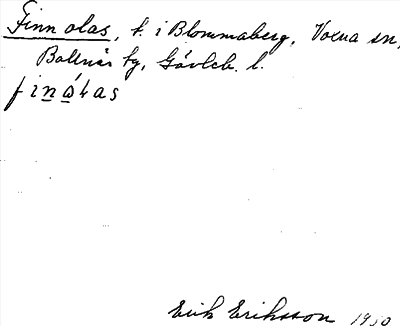 Finn olas, t. i Blommaberg, Voxna sn,
Bollnäs tg, Gävleb. l.
Erik Eriksson 1930